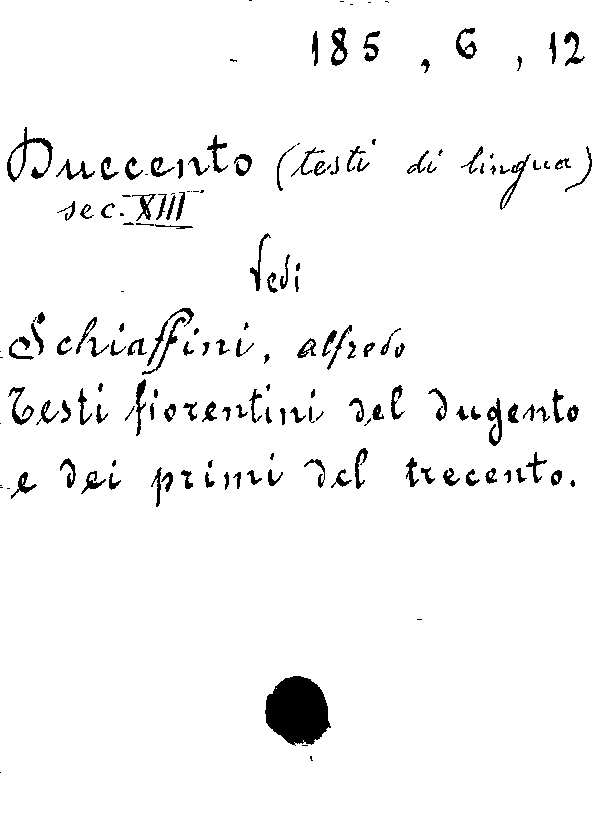 185, 6, 12
Duccento (testi di lingua)
sec. XIII
Vedi
Schiaffini, alfredo
Testi fiorentini del dugento
e dei primi del trecento.